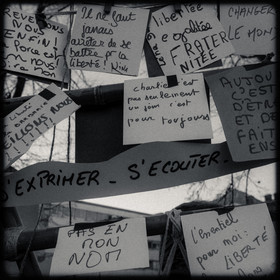 ENFIN !
Il ne faut
jamais
arrêter de se
battre pr la
liberté !
liberté
égalité
FRATER
NITÉE
CHANGER
LE MON
charlie c'est
pas seulement
un jour c'est
pour toujours
AUJOU
C'EST
D'ÊTR
ET DE
FAIT
ENS
S'EXPRIMER - S'ÉCOUTER -
PAS EN
MON
NOM
L'essentiel
pour moi :
LIBERTÉ